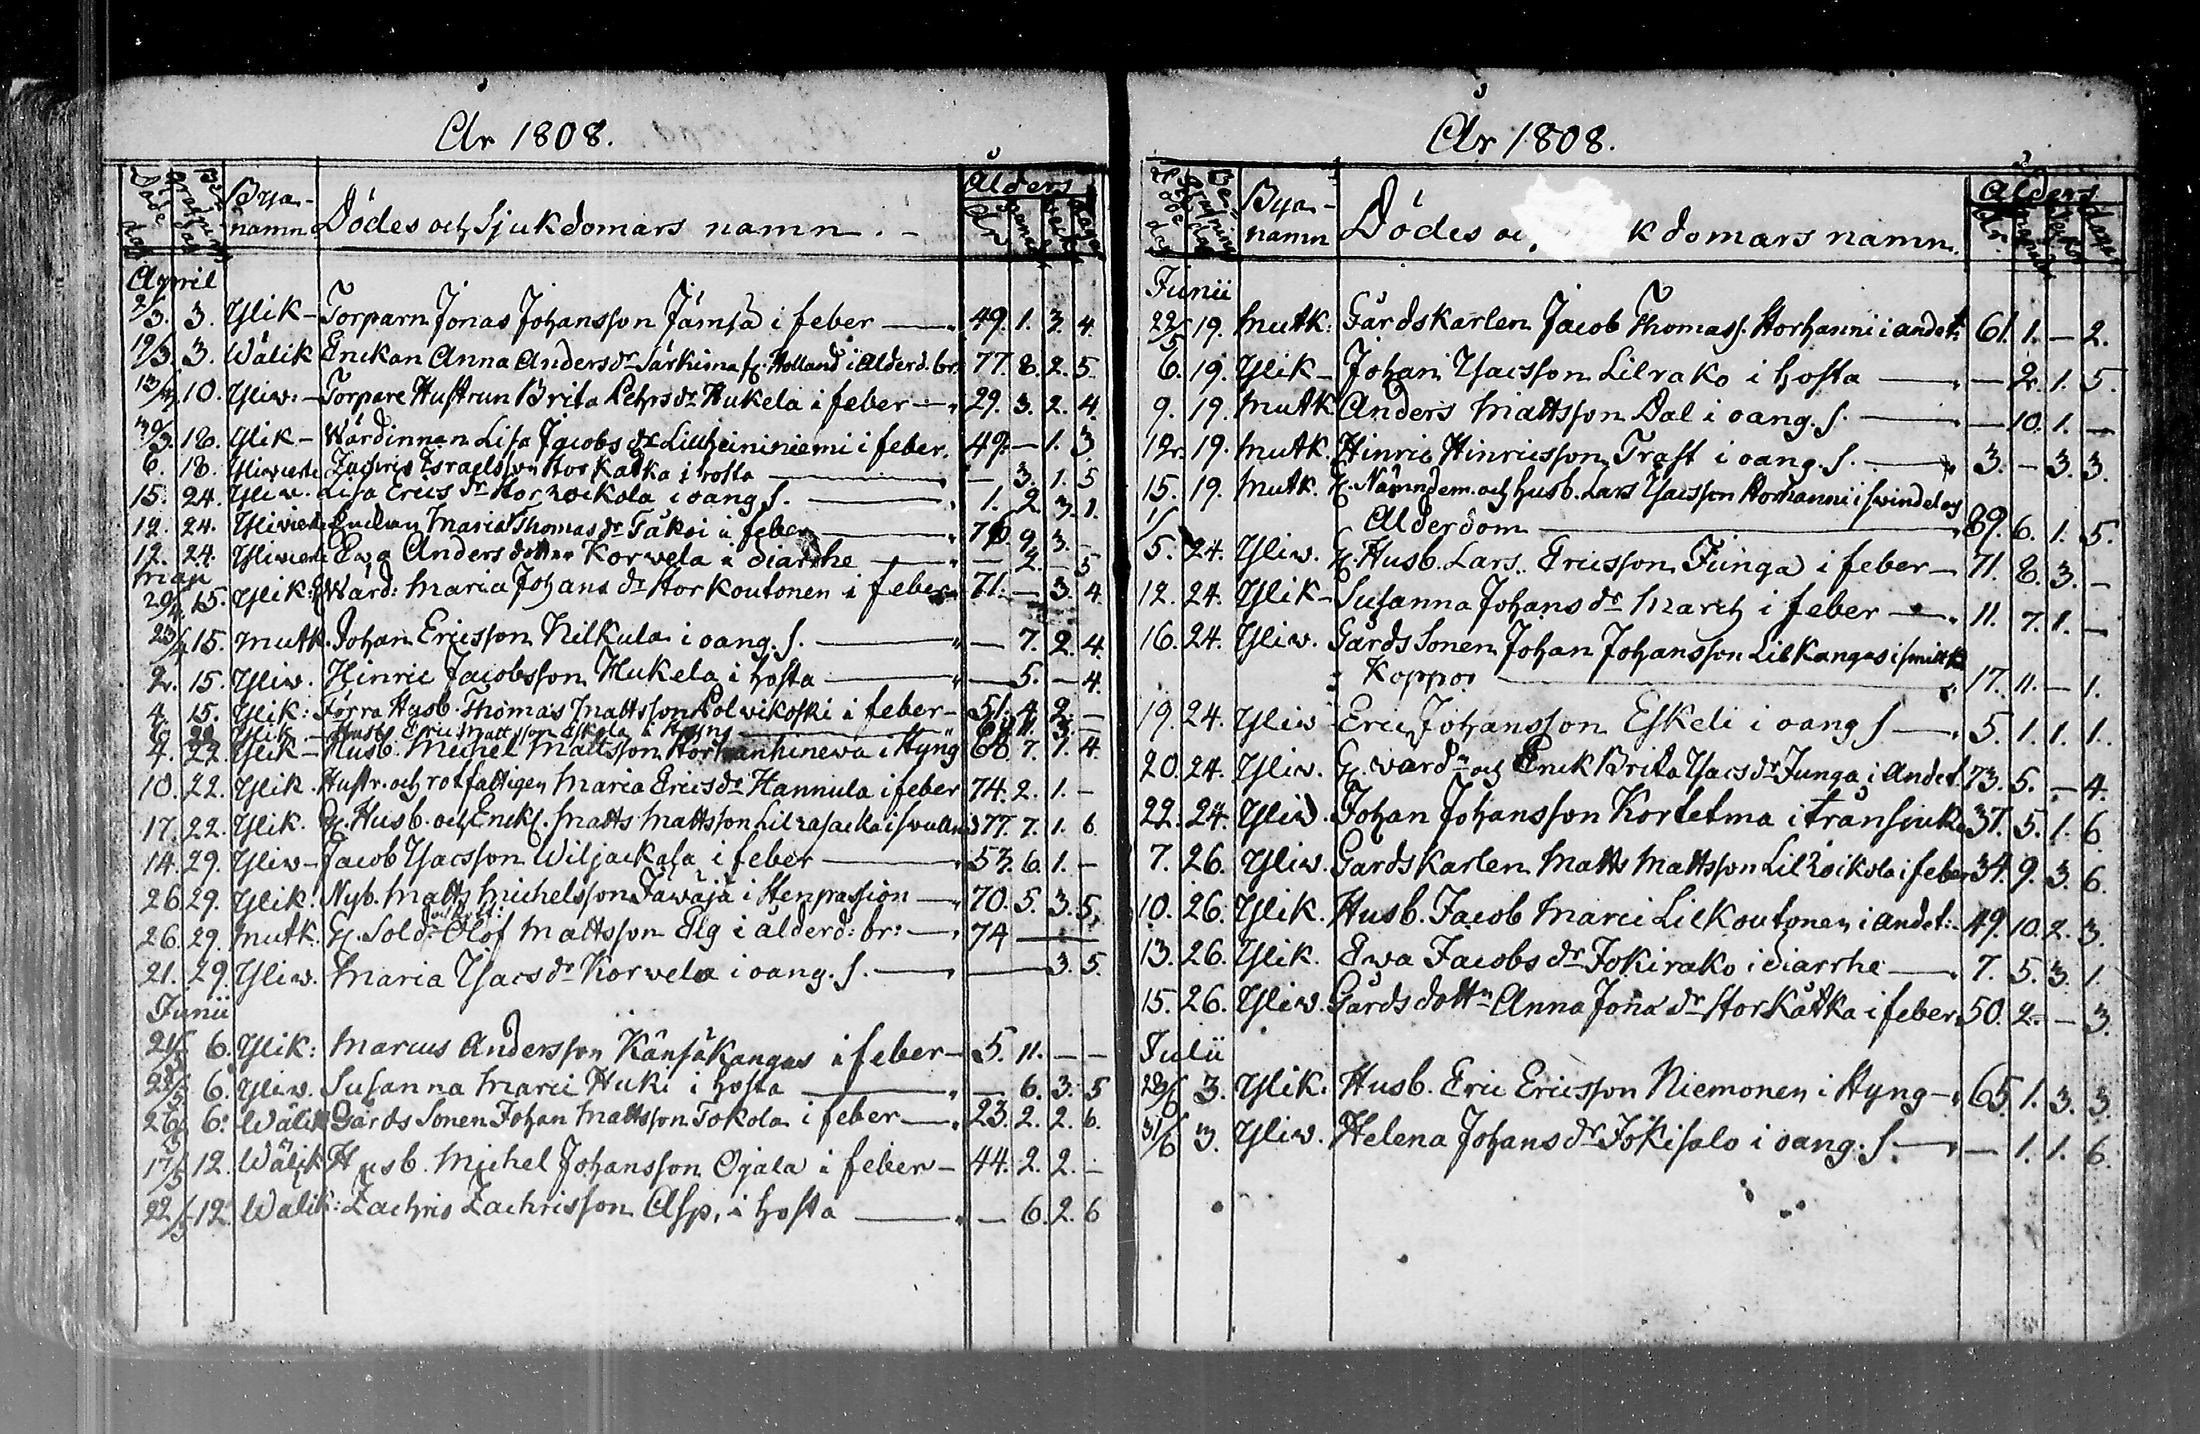 År 1808.
Döde dag Begrafnings dag Bya-namn Dödes och Sjukdomars namn. Ålders År Månad Veck. Dagar
April
2/3. 3. Ylik- Torparn Jonas Johansson Jämsä i feber 49. 1. 3. 4.
19/3. 3. Wälik Enckan Anna Anders dr Särkima f. Holland i Alderd. br. 77. 8. 2. 5.
13/4. 10. Yliw.- Torpare Hustrun Brita Pehrs dr Hukela i feber 29. 3. 2. 4.
30/3. 18. Ylik- Wärdinnan Lisa Jacobs dr i feber. 49. - 1. 3
6. 18. Yliwieska Zachris Israelsson Stor Katka i hosta - 3. 1. 5
15. 24. Yliw. Lisa Erics dr Stor i oang s. 1. 2 3. 1.
12. 24. Ylivieska Maria Thomas dr Täksi i feber 9 3. -
12. 24. Yliviesk Ewa Anders dotter Korwela i diarrhe - 2. - 5
Maji
29/4. 15. Ylik: Wärd: Maria Johans dr Storkoutonen i feber 71. - 3. 4.
23/4 15. Mutk. Johan Ericsson Nilkula i oang. s. - 7. 2. 4.
2. 15. Yliw. Hinric Jacobsson Hukela i hosta - 5. - 4.
4. 15. Ylik: Förra Husb. Thomas Mattsson Polwikoski i feber- 51. 4 2. -
6. 22 Ylik - Husb. Eric Mattsson Eskola i Styng
4. 22. Ylik- Husb. Michel Mattsson i Styng 68. 7. 1. 4
10. 22. Ylik. Hustr. och rotfattigen Maria Erics dr Hannula i feber 74. 2. 1. -
17. 22. Ylik. G. Husb. och Enckl. Matts Mattsson i 77. 7. 1. 6
14. 29. Yliw- Jacob Ysacsson Wiljackala i feber 53. 6. 1. -
26 29. Ylik: Nyb. Matts Michelsson Jäwäjä i Stenpassion 70. 5. 3. 5.
26. 29. Mutk. G. Sold. Olof Mattsson Elg i ålderd: br: 74 -
21. 29. Yliw. Maria Ysacs dr Korvela i oang. s. - 3. 5.
Junii
21/5 6. Ylik: Marcus Andersson Känsäkangas i feber- 5. 11. - -
22/5 6. Yliw. Susanna Marci Huki i hosta - 6. 3. 5
26/5 6. Wälik Gårds Sonen Johan Mattsson Tokola i feber 23. 2. 2. 6.
17/5 12. Wälik Husb. Michel Johansson Ojala i feber- 44. 2. 2. -
22/5 12. Wälik: Zachris Zachrisson Asp, i hosta - 6. 2. 6
År 1808.
Bya-namn Dödes oc kdomars namn. Ålders År
Junii
22/5 19. Mutk: Gårdskarlen Jacob Thomass. Storhanni i andet: 61. 1. - 2.
6. 19. Ylik- Johan Ysacsson Lilrako i hosta - 2. 1. 5.
9. 19. Mutk Anders Mattsson Dal i oang. s. - 10. 1. -
12. 19. Mutk. Hinric Hinricsson Trast i oang. s. 3. - 3. 3.
15. 19. Mutk. G. Nämndem. och husb. Lars Ysacsson Storhanni i swindel og
Ålderdom 89. 6. 1. 5.
5. 24. Yliw. G. Husb. Lars Ericsson Junga i feber- 71. 8. 3. -
12. 24. Ylik- Susanna Johans dr March i feber 11. 7. 1. -
16. 24. Yliw. Gårds Sonen Johan Johansson Lilkangas i smitt
Koppor 17. 11. - 1.
19. 24. Yliw Eric Johansson Eskeli i oang s 5. 1. 1. 1.
20. 24. Yliw. G. wärdn och Enck Brita Ysacs dr Junga i Andet. 73. 5. - 4.
22. 24. Yliw. Johan Johansson Kortetma i trånsiuka 37. 5. 1. 6
7. 26. Yliw. Gårdskarlen Matts Mattsson i feber 34. 9. 3. 6.
10. 26. Ylik. Husb. Jacob Marci Lilkoutonen i andet: 49. 10. 2. 3.
13. 26. Ylik. Ewa Jacobs dr Jokirako i diarrhe 7. 5. 3. 1.
15. 26. Yliw. Gårds dottn Anna Jona dr Storkåtka i feber 50. 2. - 3.
Julii
28/6 3. Ylik. Husb. Eric Ericsson Niemonen i Styng- 65. 1. 3. 3.
31/6 3. Yliw. Helena Johans dr Jokisalo i oang. s. - 1. 1. 6.